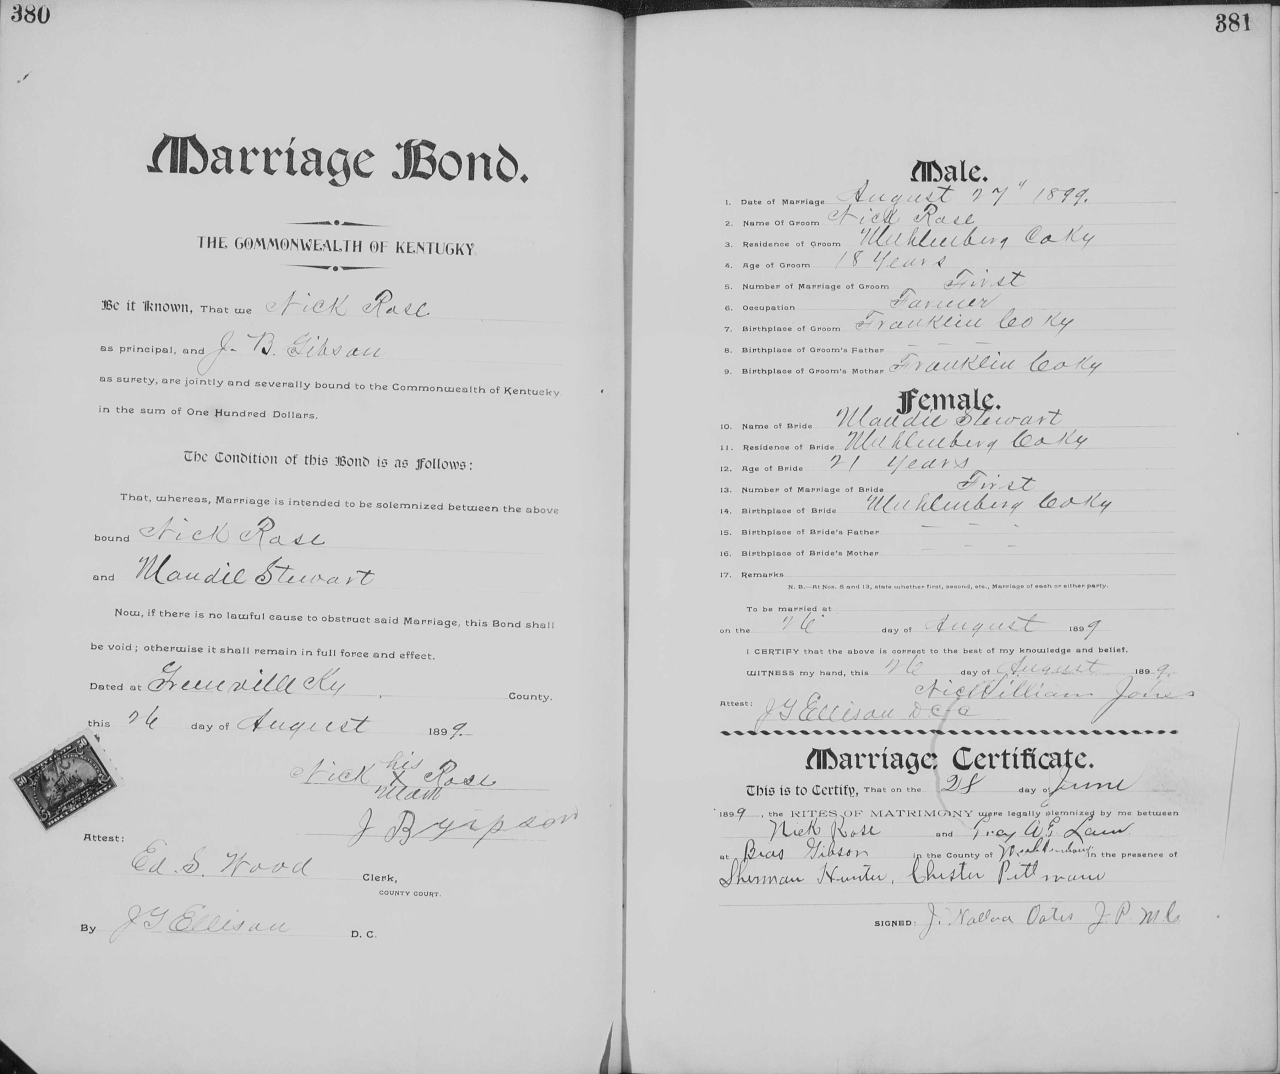 380
Marriage Bond.
THE COMMONWEALTH OF KENTUCKY
Be it Known, That we Nick Rose
as principal, and J. B. Gibson
as surety, are jointly and severally bound to the Commonwealth of Kentucky
in the sum of One Hundred Dollars.
The Condition of this Bond is as Follows:
That, whereas, Marriage is intended to be solemnized between the above
bound Nick Rose
and Maudie Stewart
Now, if there is no lawful cause to obstruct said Marriage, this Bond shall
be void; otherwise it shall remain in full force and effect.
Dated at Greenville Ky County.
this 26 day of August 1899.
his
Nick X Rose
mark
J B
Attest:
Ed. S. Wood Clerk,
COUNTY COURT.
By J G Ellison D. C.
381
Male.
1. Date of Marriage August 27" 1899.
2. Name Of Groom Nick Rose
3. Residence of Groom Muhlenberg Co Ky
4. Age of Groom 18 Years
5. Number of Marriage of Groom First
6. Occupation Farmer
7. Birthplace of Groom Franklin Co Ky
8. Birthplace of Groom's Father — — —
9. Birthplace of Groom's Mother Franklin Co Ky
Female.
10. Name of Bride Maudie Stewart
11. Residence of Bride Muhlenberg Co Ky
12. Age of Bride 21 Years
13. Number of Marriage of Bride First
14. Birthplace of Bride Muhlenberg Co Ky
15. Birthplace of Bride's Father — — -
16. Birthplace of Bride's Mother — — -
17. Remarks
N. B.—At Nos. 5 and 13, state whether first, second, etc., Marriage of each or either party.
To be married at
on the 26 day of August 1899
I CERTIFY that the above is correct to the best of my knowledge and belief.
WITNESS my hand, this 26 day of August 1899.
William Jones
Attest: J G Ellison D C C
Marriage Certificate.
This is to Certify, That on the 28 day of June
1899, the RITES OF MATRIMONY were legally solemnized by me between
Nick Rose and
at Bras Gibson in the County of Muhlenberg in the presence of
Sherman Hunter, Chester Pittman
SIGNED: J. Wallace Oates J. P. M. C.